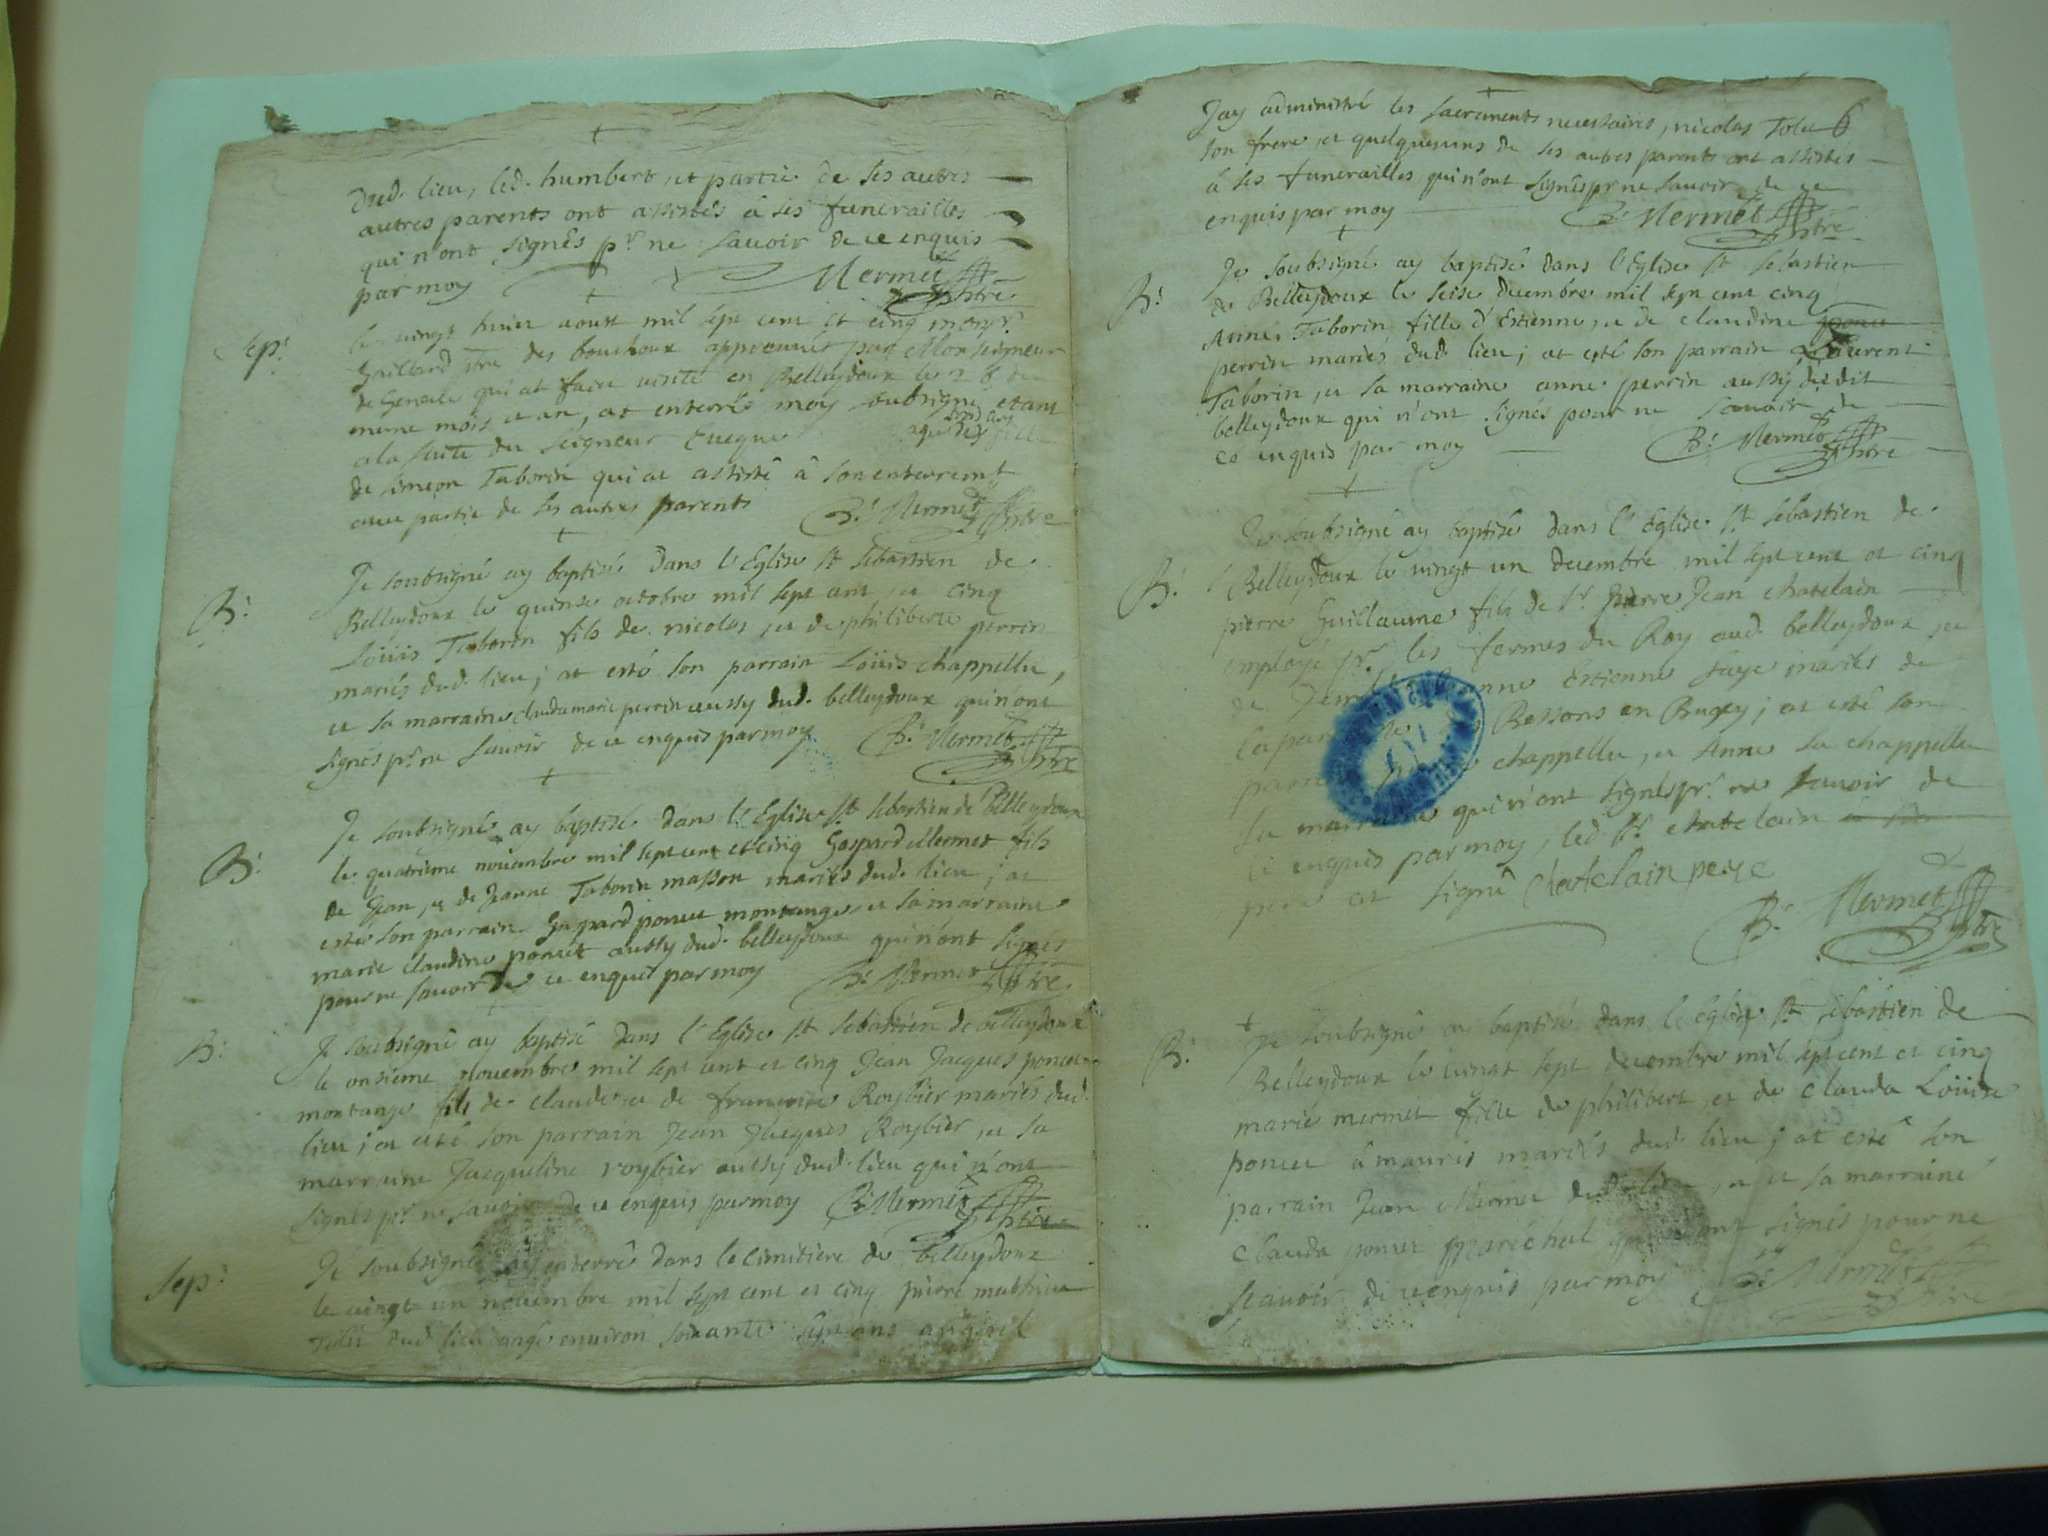 dud. lieu, led. humbert, et partie de ses autres
autres parents ont assistés â ses funerailles
qui n'ont signés pr. ne savoir de ce enquis
par moy Mermet ptre
Sep: le vingt huict aoust mil sept cent et cinq
ptre des bouchoux appreuué par Monseigneur
de Geneve qui at faict visite en Belleydoux le 28 du
meme mois et an, at enterré moy soubsigné etant
a la suite du Seigneur Eueque
de Simeon Taborin qui at assisté â son enterremt
avec partie de ses autres parents B: Mermet ptre
B: Je soubsigné ay baptisé dans l'Eglise st sebastien de
Belleydoux le quinse octobre mil sept cent et cinq
Loüis Taborin fils de nicolas, et de philiberte perrin
mariés dud. lieu; at esté son parrain Loüis chappellu,
et sa marraine claudamarie perrin aussy dud. belleydoux qui n'ont
signés pr. ne savoir de ce enquis par moy B: Mermet ptre
B: Je soubsigné ay baptisé dans l'Eglise st sebastien de Belleydoux
le quatrieme nouembre mil sept cent et cinq Gaspard Mermet fils
de Jean, et de Jeanne Taborin masson mariés dud. lieu; at
esté son parrain Gaspard poncet montange et sa marraine
marie claudine poncet aussy dud. belleydoux qui n'ont signés
pour ne savoir de ce enquis par moy B: Mermet ptre
B: Je soubsigné ay baptisé dans l'Eglise st sebastien de belleydoux
le onsieme novembre mil sept cent et cinq Jean Jacques poncet
montange fils de claude et de francoise Roybier mariés dud.
lieu; at esté son parrain Jean Jacques Roybier, et sa
marraine Jacqueline roybier aussy dud. lieu qui n'ont
signés pr. ne savoir de ce enquis par moy B: Mermet ptre
Sep: Je soubsigné ay enterré dans le cimitiere de belleydoux
le vingt un novembre mil sept cent et cinq pierre
dud. lieu agé environ soixante sept ans auquel
Jay administré les sacrements necessaires, nicolas 6
son frere, et quelquesuns de ses autres parents ont assistés
â ses funerailles qui n'ont signés pr ne savoir de ce
enquis par moy B: Mermet ptre
B: Je soubsigné ay baptisé dans l'Eglise st sebastien
de Belleydoux le seise decembre mil sept cent cinq
Anne Taborin fille d'Estienne, et de claudine
perrin mariés dud. lieu; at esté son parrain Laurent
Taborin, et sa marraine anne perrin aussy dudit
belleydoux qui n'ont signés pour ne savoir de
ce enquis par moy B: Mermet ptre
B: Je soubsigné ay baptisé dans l'Eglise st sebastien de
Belleydoux le vingt un decembre mil sept cent et cinq
pierre Guillaume fils de sr. pierre Jean chatelain
employé pr. les fermes du Roy aud. belleydoux, et
de Estienne faye mariés de
Bessons en Bugey; at esté son
chappellu, et Anne la chappellu
sa marraine qui n'ont signés pr. ne savoir de
ce enquis par moy, led. sr. chatelain
pere at signé Chatelain pere
B: Mermet ptre
B: Je soubsigné ay baptisé dans l'Eglise st sebastien de
Belleydoux le vingt sept decembre mil sept cent et cinq
marie mermet fille de philibert, et de clauda Loüise
poncet â mauris mariés dud. lieu; at esté son
parrain Jean Mermet dud. lieu, et sa marraine
clauda poncet marêchal qui n'ont signés pour ne
scavoir de ce enquis par moy B: Mermet ptre